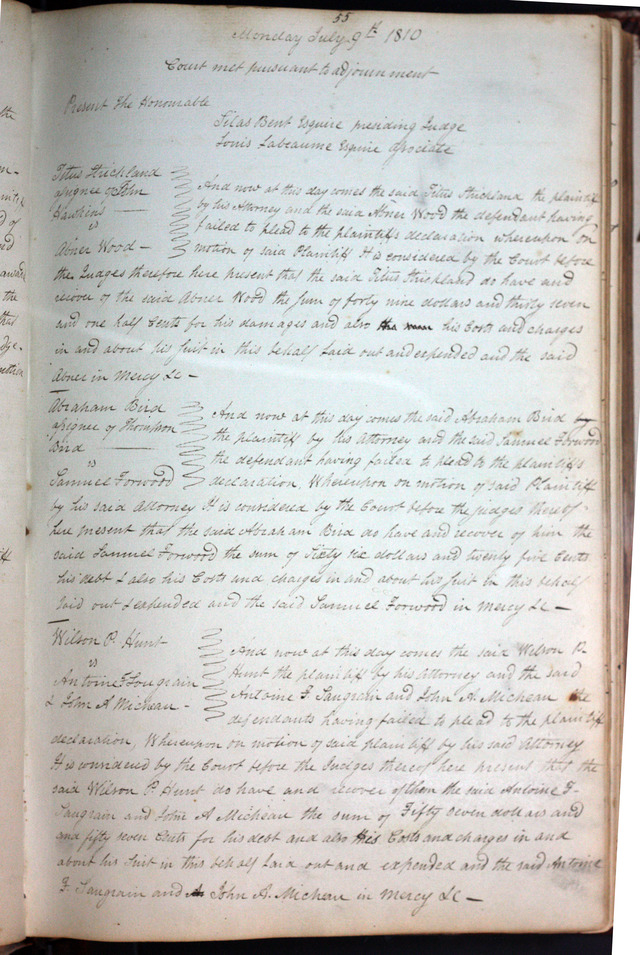 55
Monday July 9th 1810
Court met pursuant to adjournment
Present the Honourable
Silas Bent Esquire presiding Judge
Louis Labeaume Esquire Associate
Titus Strickland
assignee of John
Hawkins —
vs
Abner Wood —
And now at this day comes the said Titus Strickland the plaintiff
by his Attorney and the said Abner Wood the defendant having
failed to plead to the plaintiffs declaration whereupon on
motion of said Plaintiff It is considered by the Court before
the Judges therefore here present that the said Titus Strickland do have and
recover of the said Abner Wood the sum of forty nine dollars and thirty seven
and one half Cents for his damages and also his Costs and charges
in and about his suit in this behalf Laid out and expended and the said
Abner in Mercy &c —
Abraham Bird
assignee of Thompson
Bird
vs
Samuel Forwood
And now at this day comes the said Abraham Bird by
the plaintiff by his Attorney and the said Samuel Forwood
the defendant having failed to plead to the plaintiffs
declaration. Whereupon on motion of said Plaintiff
by his said Attorney It is considered by the Court before the judges thereof
here present that the said Abraham Bird do have and recover of him the
said Samuel Forwood the sum of Sixty six dollars and twenty five Cents
his debt & also his Costs and charges in and about his suit in this behalf
laid out & expended and the said Samuel Forwood in mercy &c —
Wilson P. Hunt
vs
Antoine F Saugrain
& John A Micheau -
And now at this day comes the said Wilson P.
Hunt the plaintiff by his Attorney and the said
Antoine F. Saugrain and John A. Micheau the
defendants having failed to plead to the plaintiff
declaration, Whereupon on motion of said plaintiff by his said Attorney
It is considered by the Court before the Judges thereof here present that the
said Wilson P. Hunt do have and recover of them the said Antoine F-
Saugrain and John A Micheau the sum of Fifty seven dollars and
and fifty seven Cents for his debt and also his Costs and charges in and
about his suit in this behalf Laid out and expended and the said Antoine
F. Saugrain and John A. Micheau in mercy &c —